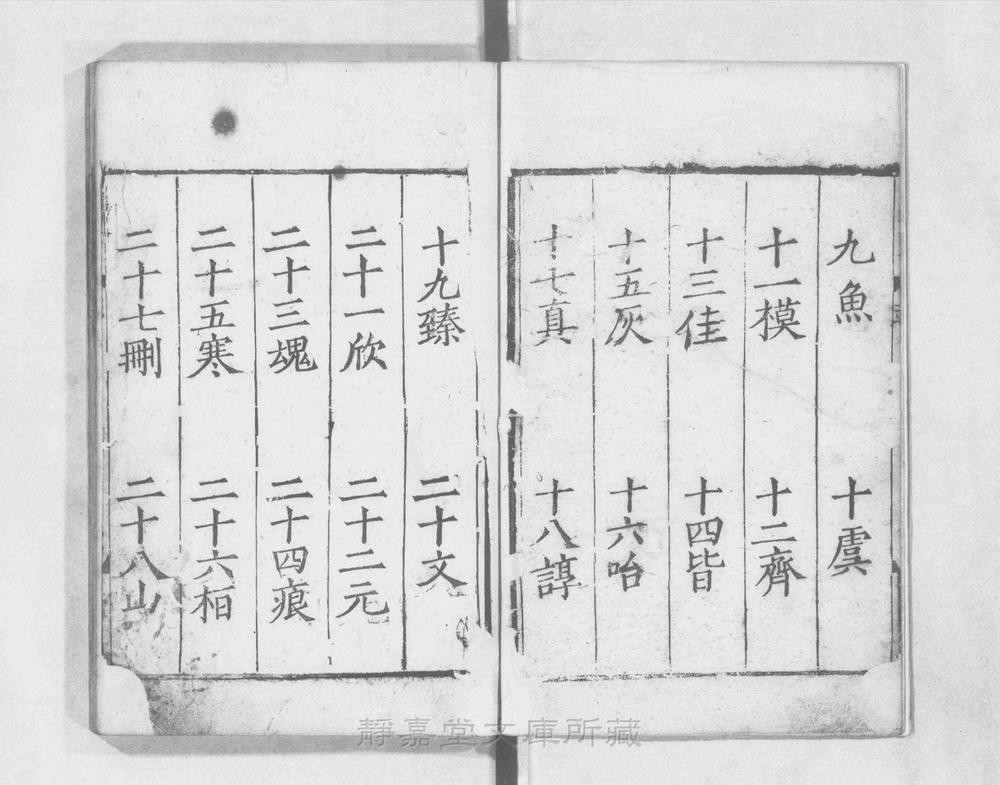 九魚　十虞
十一模　十二齊
十三佳　十四皆
十五灰　十六咍
十七真　十八諄
十九臻　二十文
二十一欣　二十二元
二十三魂　二十四痕
二十五寒　二十六桓
二十七刪　二十八山
靜嘉堂文庫所藏